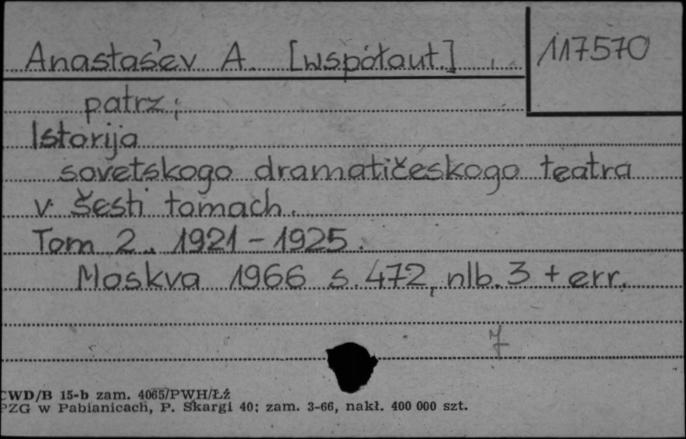 Anastas'ev A. [współaut.]
117570
patrz:
Istorija
sovetskogo dramatičeskogo teatra
v šesti tomach.
Tom 2. 1921 - 1925.
Moskva 1966 s. 472, nlb. 3 + err.
7
CWD/B 15-b zam. 4065/PWH/Łź
PZG w Pabianicach, P. Skargi 40; zam. 3-66, nakł. 400 000 szt.